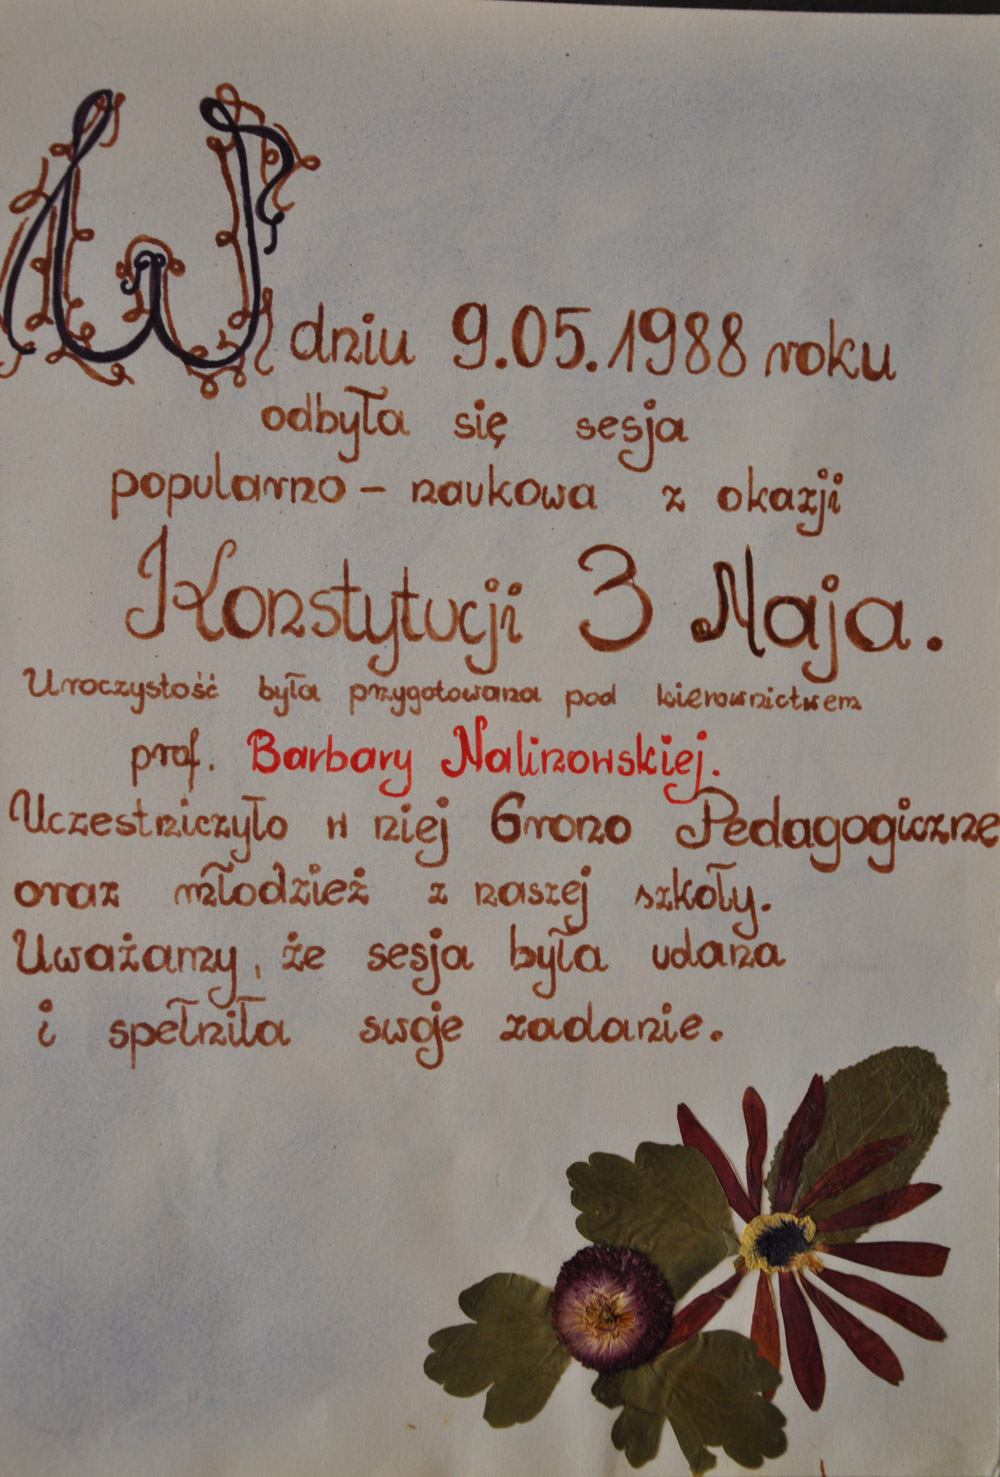 W dniu 9.05.1988 roku
odbyła się sesja
popularno – naukowa z okazji
Konstytucji 3 Maja.
Uroczystość była przygotowana pod kierownictwem
prof. Barbary Nalinowskiej.
Uczestniczyło w niej Grono Pedagogiczne
oraz młodzież z naszej szkoły.
Uważamy, że sesja była udana
i spełniła swoje zadanie.